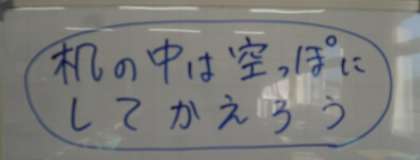 机の中は空っぽに
してかえろう